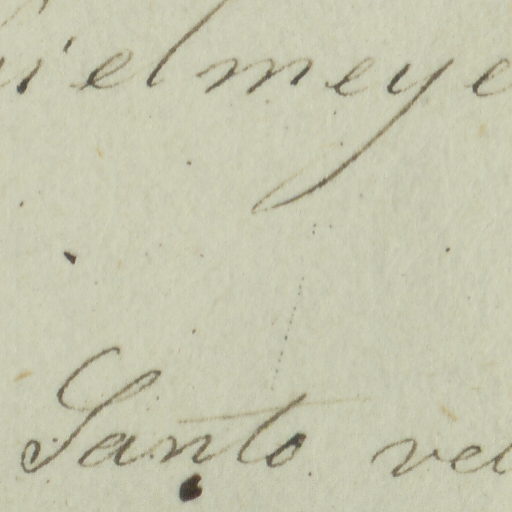 ielmeye
Santo vel